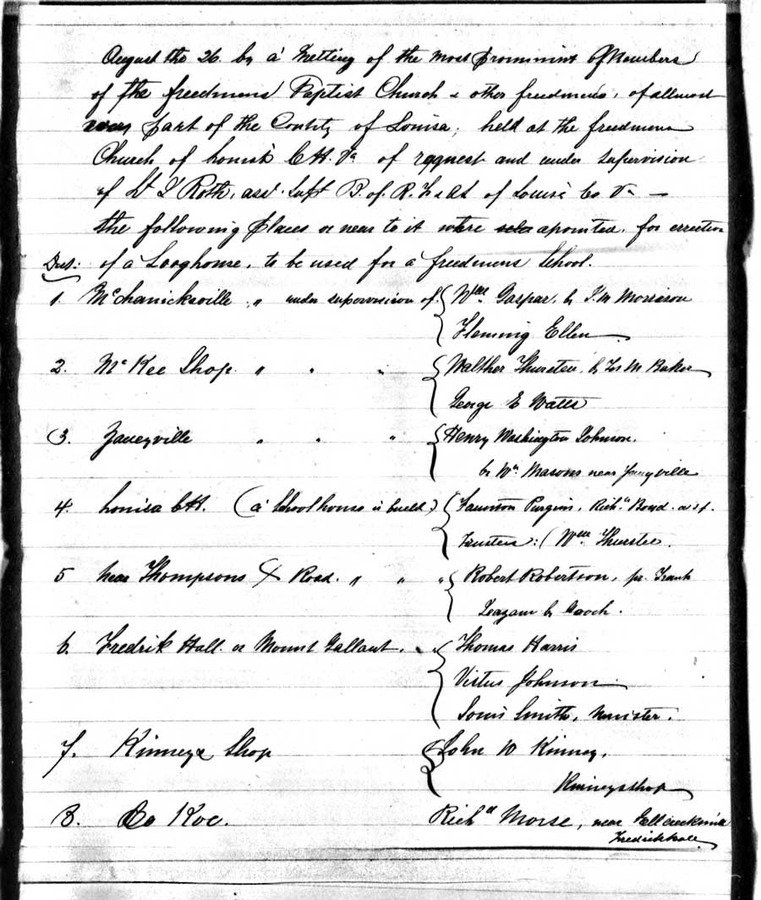 August the 26. by a' Metting of the most prominint Members
of the freedmens Baptist Church & other freedmens, of allmost
every part of the County of Louisa; held at the freedmens
Church of Louisa C.H. Va of request and under supervision
of Lt J Roth, asst Supt B. of R. F & AL of Louisa Co. Va —
the following places or near to it were apointed, for errection
of a Looghouse, to be used for a freedmens School.
1. Mchanicksville " under supervision of { Wm Gaspar, by J. M Morrison
Fleming Ellen
2. McKee Shop " " " { Walther Thurston, by Jos M Baker
George E Watts
3. Janeyville " " " { Henry Washington Johnson.
by Wm Masons near Janeyville
4. Louisa CH. (a' Schoolhouse is build.) { Richd Boyd
Trusters: (Wm Thurston.
5 near Thompsons X Road. " " " { Robert Robertson, pr. Frank
by Gooch.
6. Fredrik Hall or Mount Gallant. " { Thomas Harris
Vitus Johnson
Louis Smith, Minister.
7. Kinneys Shop { John W Kinney,
Kinneyshop
8. Richd Morse, near
Fredrickhall